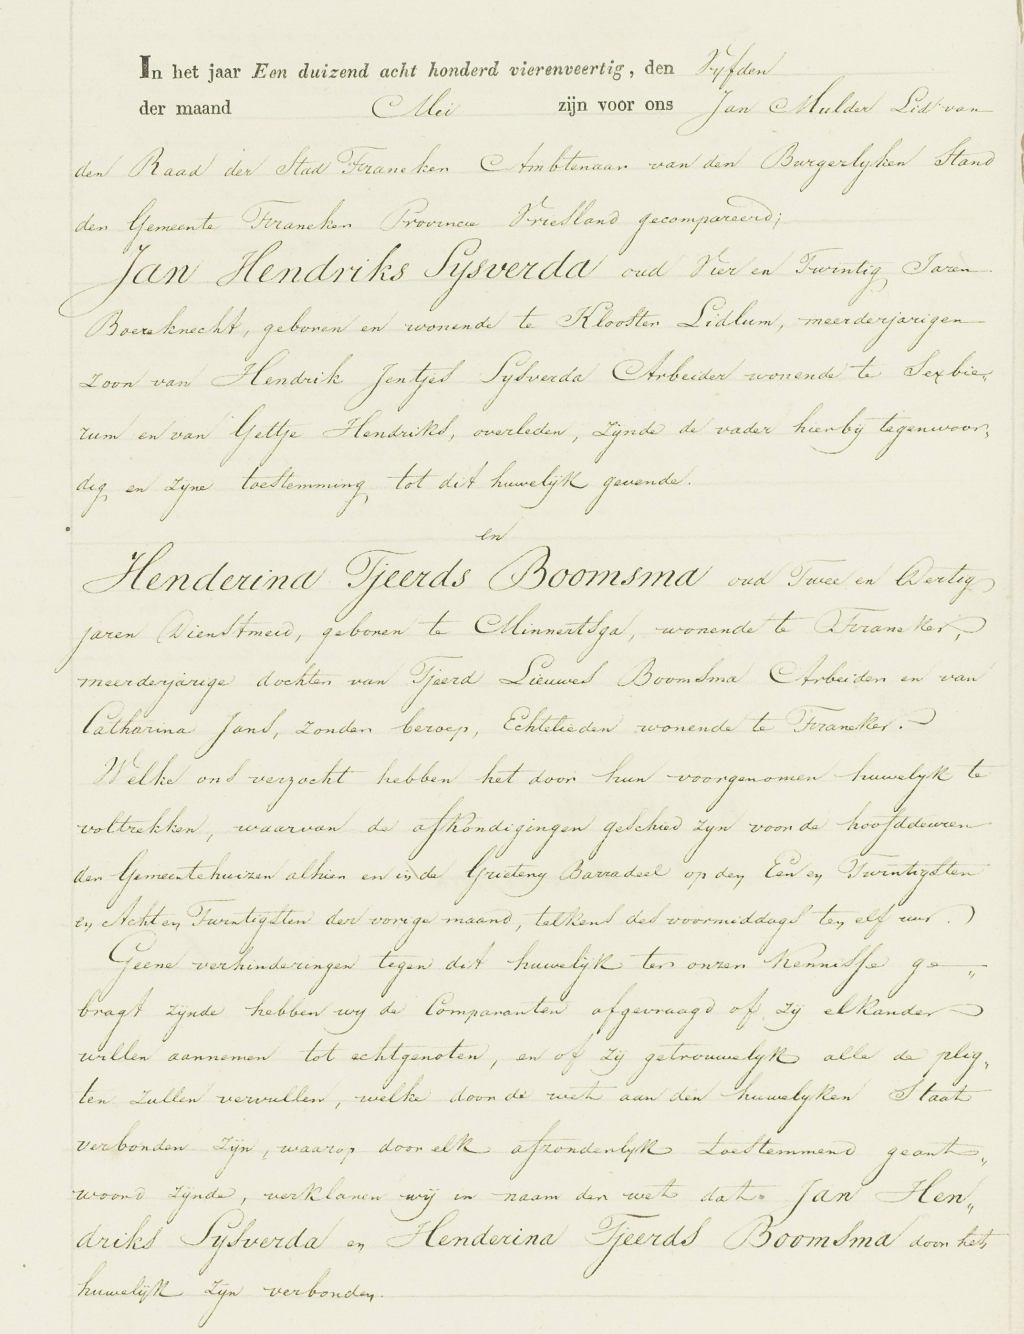 In het jaar Een duizend acht honderd vierenveertig, den Vyfden
der maand Mei zijn voor ons Jan Mulder Lid van
den Raad der Stad Franeker Ambtenaar van den Burgerlyken Stand
der Gemeente Franeker Provincie Vriesland gecompareerd;
Jan Hendriks Sysverda oud Vier en Twintig Jaren
Boereknecht, geboren en wonende te Klooster Lidlum, meerderjarigen
zoon van Hendrik Jentjes Sysverda Arbeider wonende te Sexbie„
rum en van Gettje Hendriks, overleden, zijnde de vader hierbij tegenwoor„
dig en zijne toestemming tot dit huwelijk gevende.
en
Henderina Tjeerds Boomsma oud Twee en Dertig
jaren Dienstmeid, geboren te Minnertsga, wonende te Franeker,
meerderjarige dochter van Tjeerd Lieuwes Boomsma Arbeider en van
Catharina Jans, zonder beroep, Echtelieden wonende te Franeker.
Welke ons verzocht hebben het door hun voorgenomen huwelyk te
voltrekken, waarvan de afkondigingen geschied zyn voor de hoofddeuren
der Gemeentehuizen alhier en in de Grieteny Barradeel op den Een en Twintigsten
en Acht en Twintigsten der vorige maand, telkens des voormiddags ten elf uur.
Geene verhinderingen tegen dit huwelijk ter onzer kennisse ge„
bragt zijnde hebben wy de Comparanten afgevraagd of zij elkander
willen aannemen tot echtgenoten, en of zij getrouwelyk alle de plig„
ten zullen vervullen, welke door de wet aan den huwelyken Staat
verbonden zijn, waarop door elk afzonderlyk toestemmend geant„
woord zijnde, verklaren wij in naam der wet dat Jan Hen„
driks Sysverda en Henderina Tjeerds Boomsma door het
huwelijk zyn verbonden.